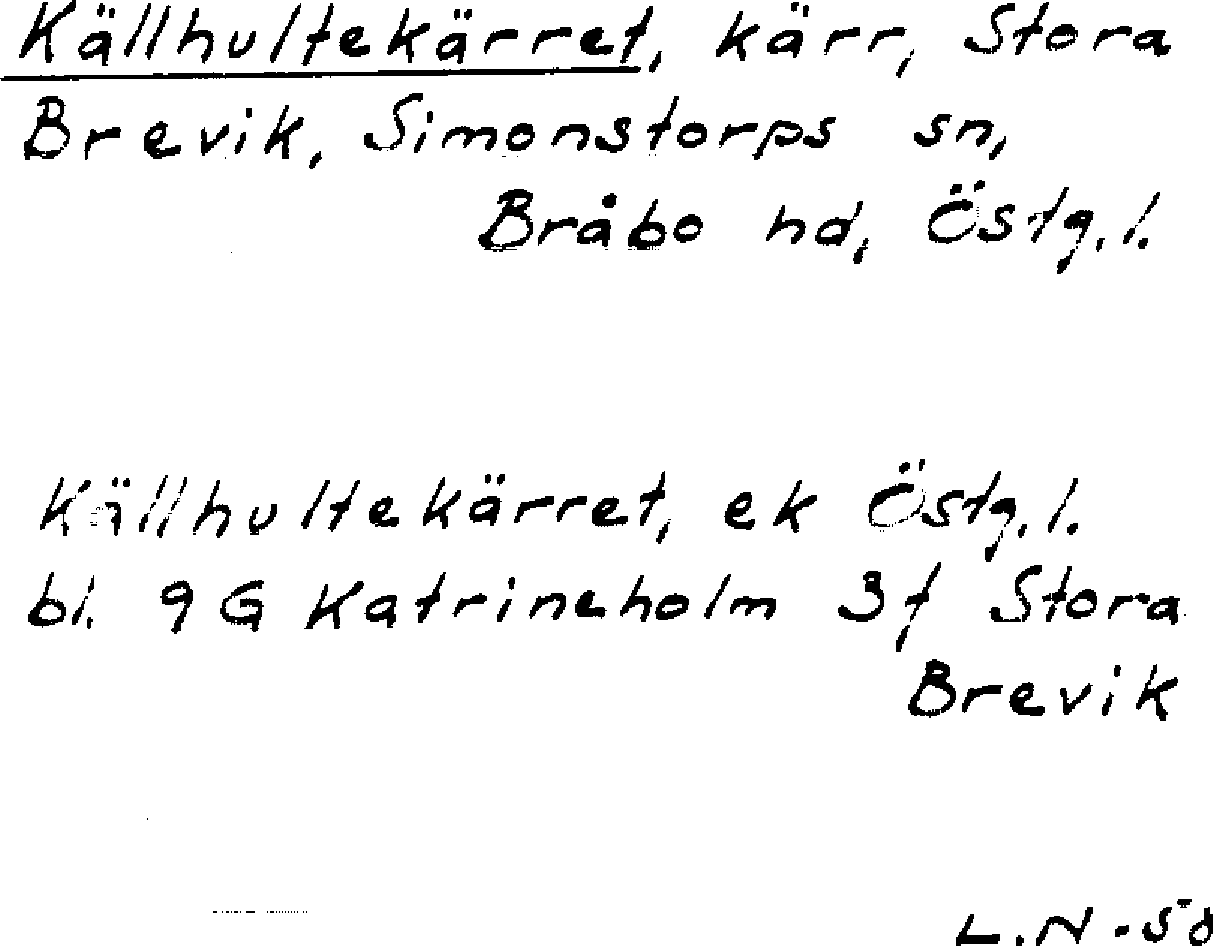 Källhultekärret, kärr, Stora
Brevik, Simonstorps sn,
Bråbo hd, Östg.l.
Källhultekärret, ek Östg.l.
bl. 9G Katrineholm 3f Stora
Brevik
L.N.